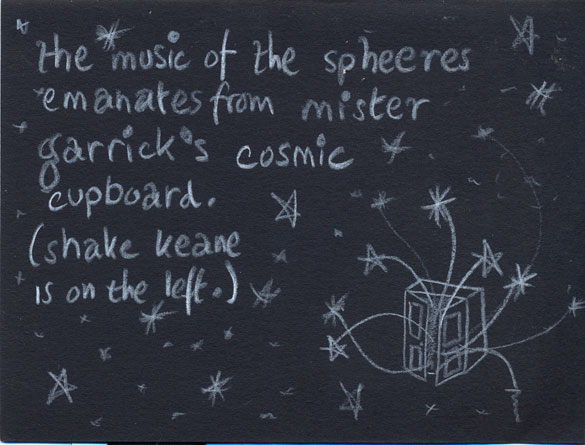 the music of the spheeres
emanates from mister
garrick's cosmic
cupboard.
(shake keane
is on the left.)